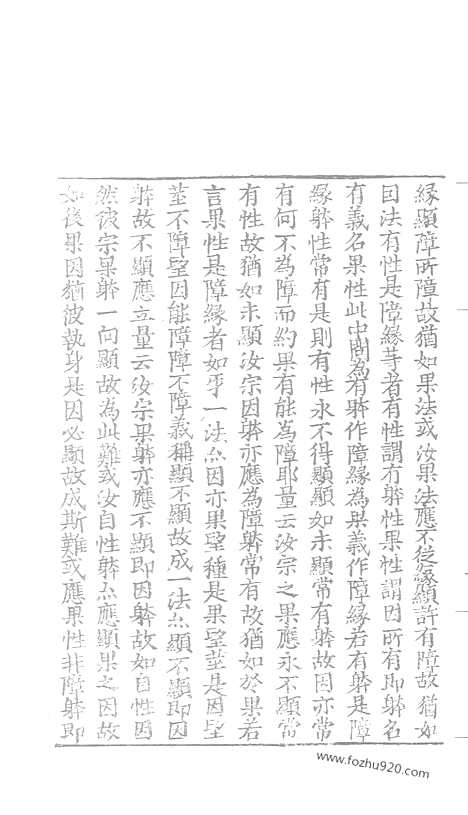 緣顯障所障故猶如果法或汝果法應不從緣顯許有障故猶如
因法有性是障緣等者有性謂有躰性果性謂因所有即躰名
有義名果性此中闍為有躰作障緣為果義作障緣若有躰是障
緣躰性常有是則有性永不得顯顯如未顯常有躰故因亦常
有何不為障而約果有能為障耶量云汝宗之果應永不顯常
有性故猶如未顯汝宗因躰亦應為障躰常有故猶如於果若
言果性是障緣者如牙一法亦因亦果望種是果望莖是因望
莖不障望因能障障不障義稱顯不顯故成一法亦顯不顯即因
躰故不顯應立量云汝宗果躰亦應不顯即因躰故如自性因
然彼宗果躰一向顯故為此難或汝自性躰亦應顯果之因故
如後果因猶彼執身是因必顯故成斯難或應果性非障躰即
www.fozhu920.com